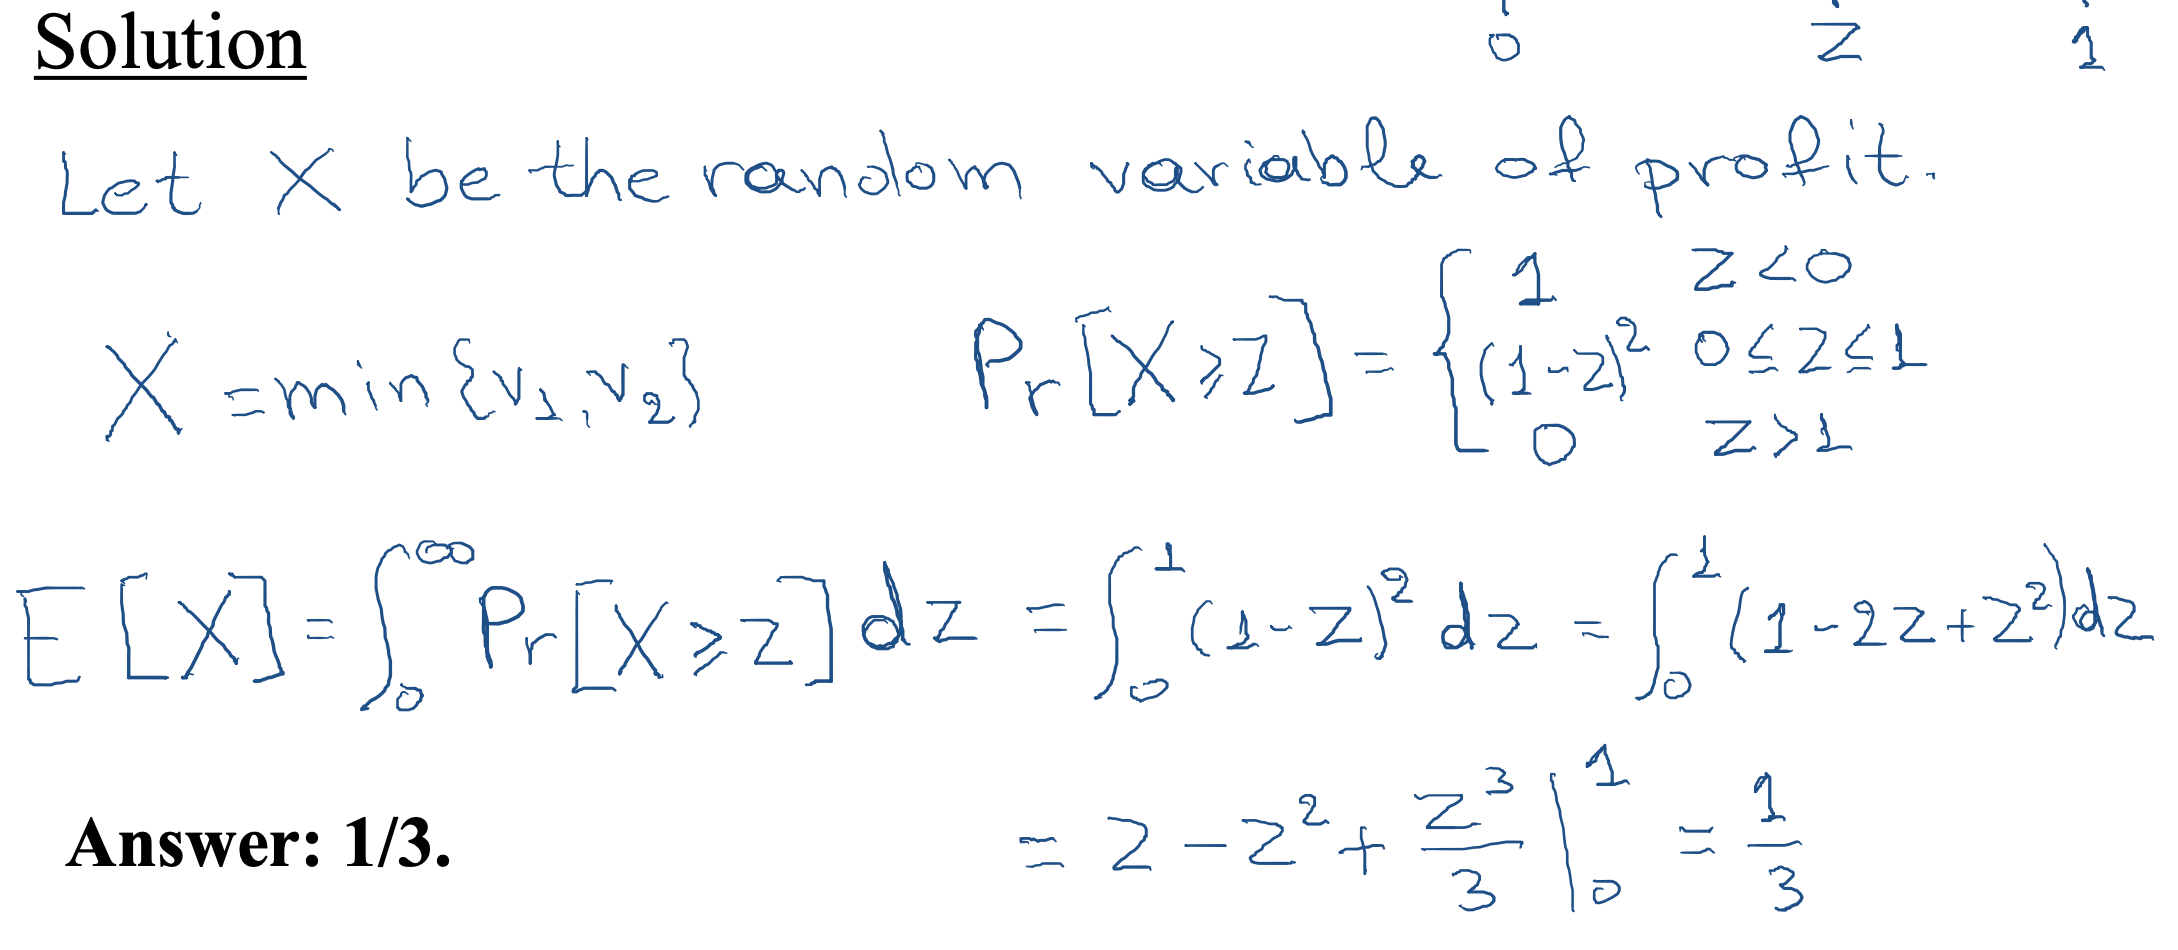 Solution
0 z 1
Let X be the random variable of profit.
X = min{v₁, v₂} Pr[X ≥ z] = { 1 z < 0
(1-z)² 0 ≤ z ≤ 1
0 z > 1
E[X] = ∫₀^∞ Pr[X ≥ z] dz = ∫₀¹ (1-z)² dz = ∫₀¹ (1-2z+z²)dz
= z - z² + z³/3 |₀¹ = 1/3
Answer: 1/3.